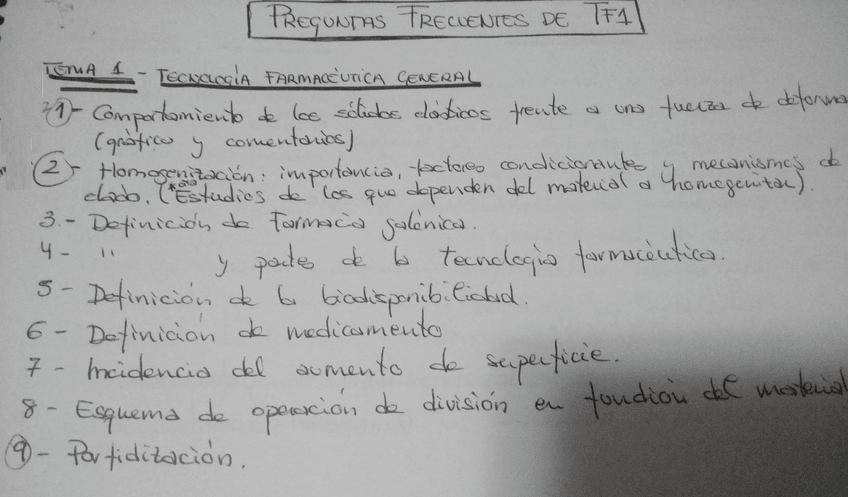 PREGUNTAS FRECUENTES DE TF1
TEMA 1 - TECNOLOGÍA FARMACÉUTICA GENERAL
1)- Comportamiento de los sólidos elásticos frente a una fuerza de deforma
(gráfico y comentarios)
2)- Homogenización: importancia, factores condicionantes y mecanismos de
(* Estudios de los que dependen del material a homogenizar).
3.- Definición de Farmacia galénica.
4- " y partes de la tecnología farmacéutica.
5- Definición de la biodisponibilidad.
6- Definición de medicamento
7- Incidencia del aumento de superficie.
8- Esquema de operación de división en función del material
9)- Porfidización.